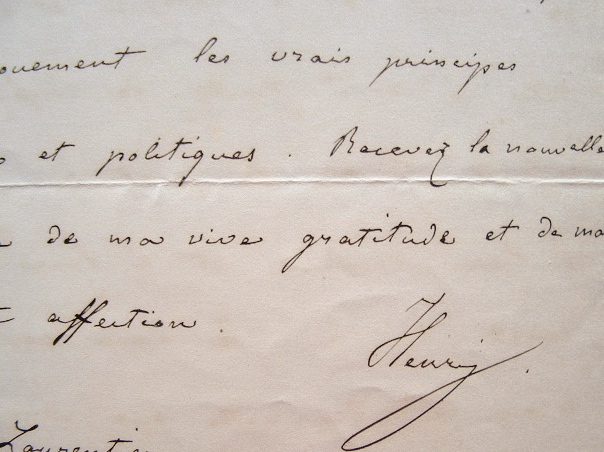 ouement les vrais principes
et politiques. Recevez la nouvelle
de ma vive gratitude et de ma
affection.
Henri.
Laurentie